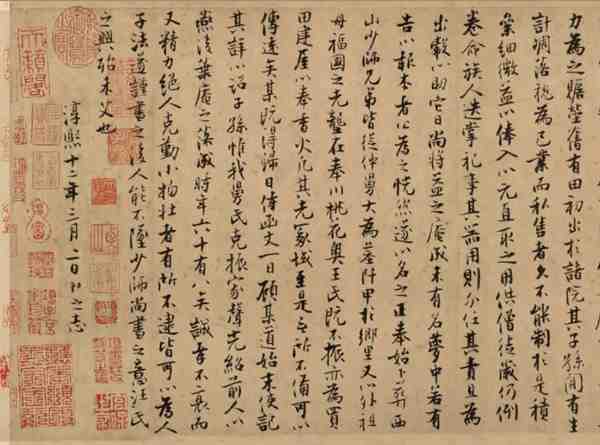 力為之賙塋舊有田初出於諸院其子孫間有生
計凋落視為己業而私售者久不能制於是積
絫細微益以俸入以元直取之用供僧徒歲仍倒
卷命族人迭掌祀事其器用則分任其責且為
出穀以助它日尚將益之庵成未有名夢中若有
告以報本者公為之恍然遂以名之正奉始卜葬西
山少師兄弟皆從仲舅大為墓阡甲於鄉里又以外祖
母福國之先壟在奉川桃花奧王氏既不振亦為買
田建屋以奉香火凡其先冢域至是無所不備可以
傳遠矣某既得歸日侍函丈一日顧某道始末使記
其詳以詔子孫惟我舅氏克振家聲光紹前人以
燕後葉庵之落成時年六十有八矣誠孝不衰而
又精力絕人克勤小物壯者有所不逮皆可以為人
子法遂謹書之後人能不墜少師尚書之意汪氏
之興殆未艾也
淳熙十二年三月二日之志
天籟閣